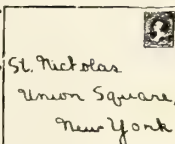 St. Nicholas
Union Square,
New York